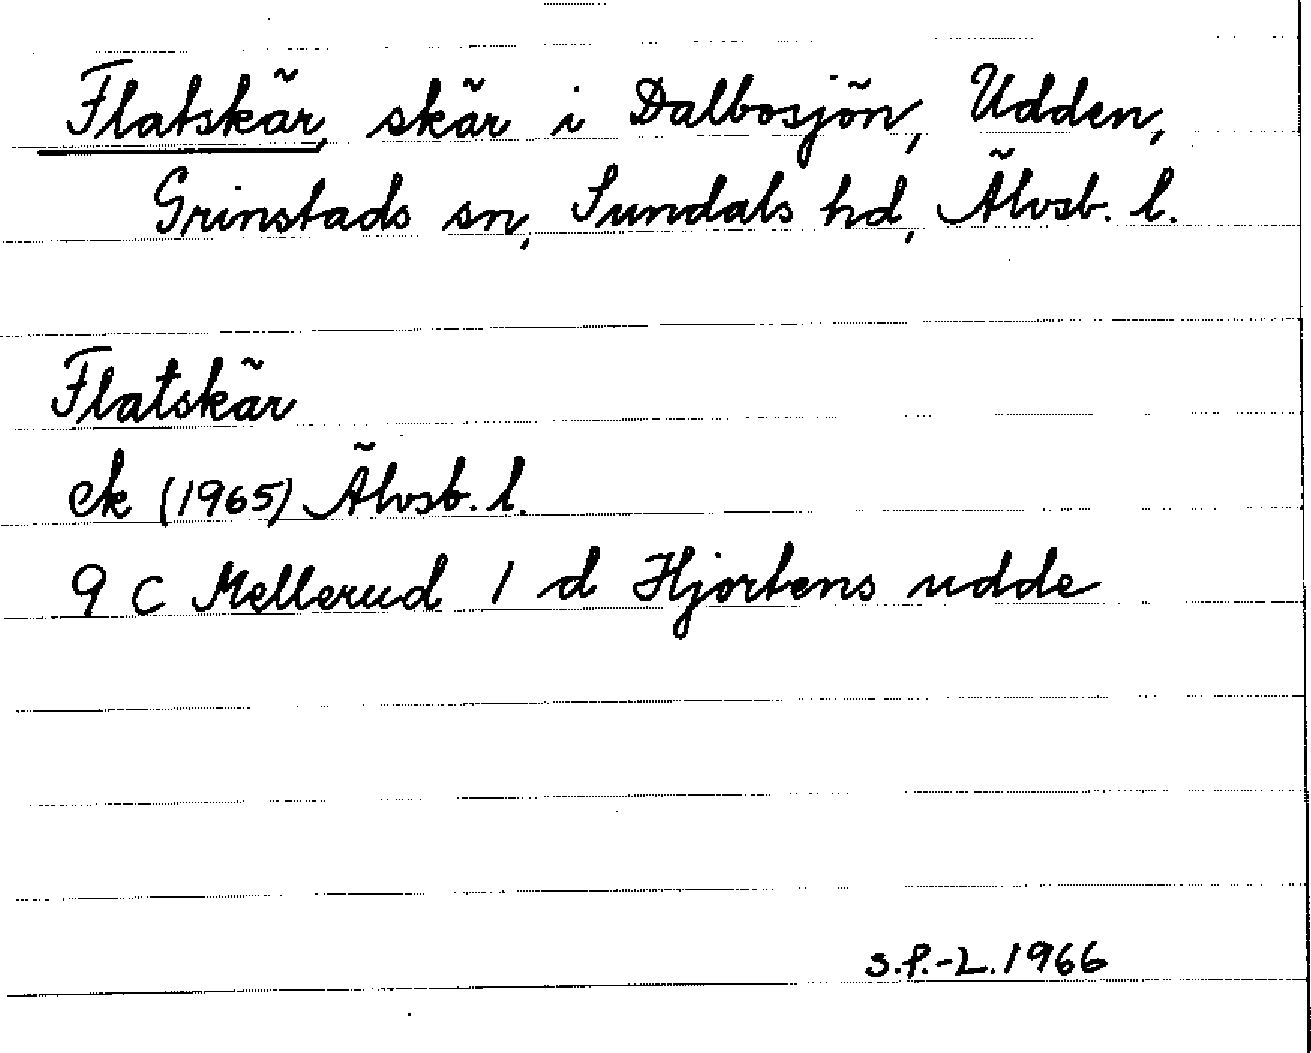 Flatskär, skär i Dalbosjön, Udden,
Grinstads sn, Sundals hd, Älvsb. l.
Flatskär
ek (1965) Älvsb. l.
9 C Mellerud 1 d Hjortens udde
S.P.-L. 1966